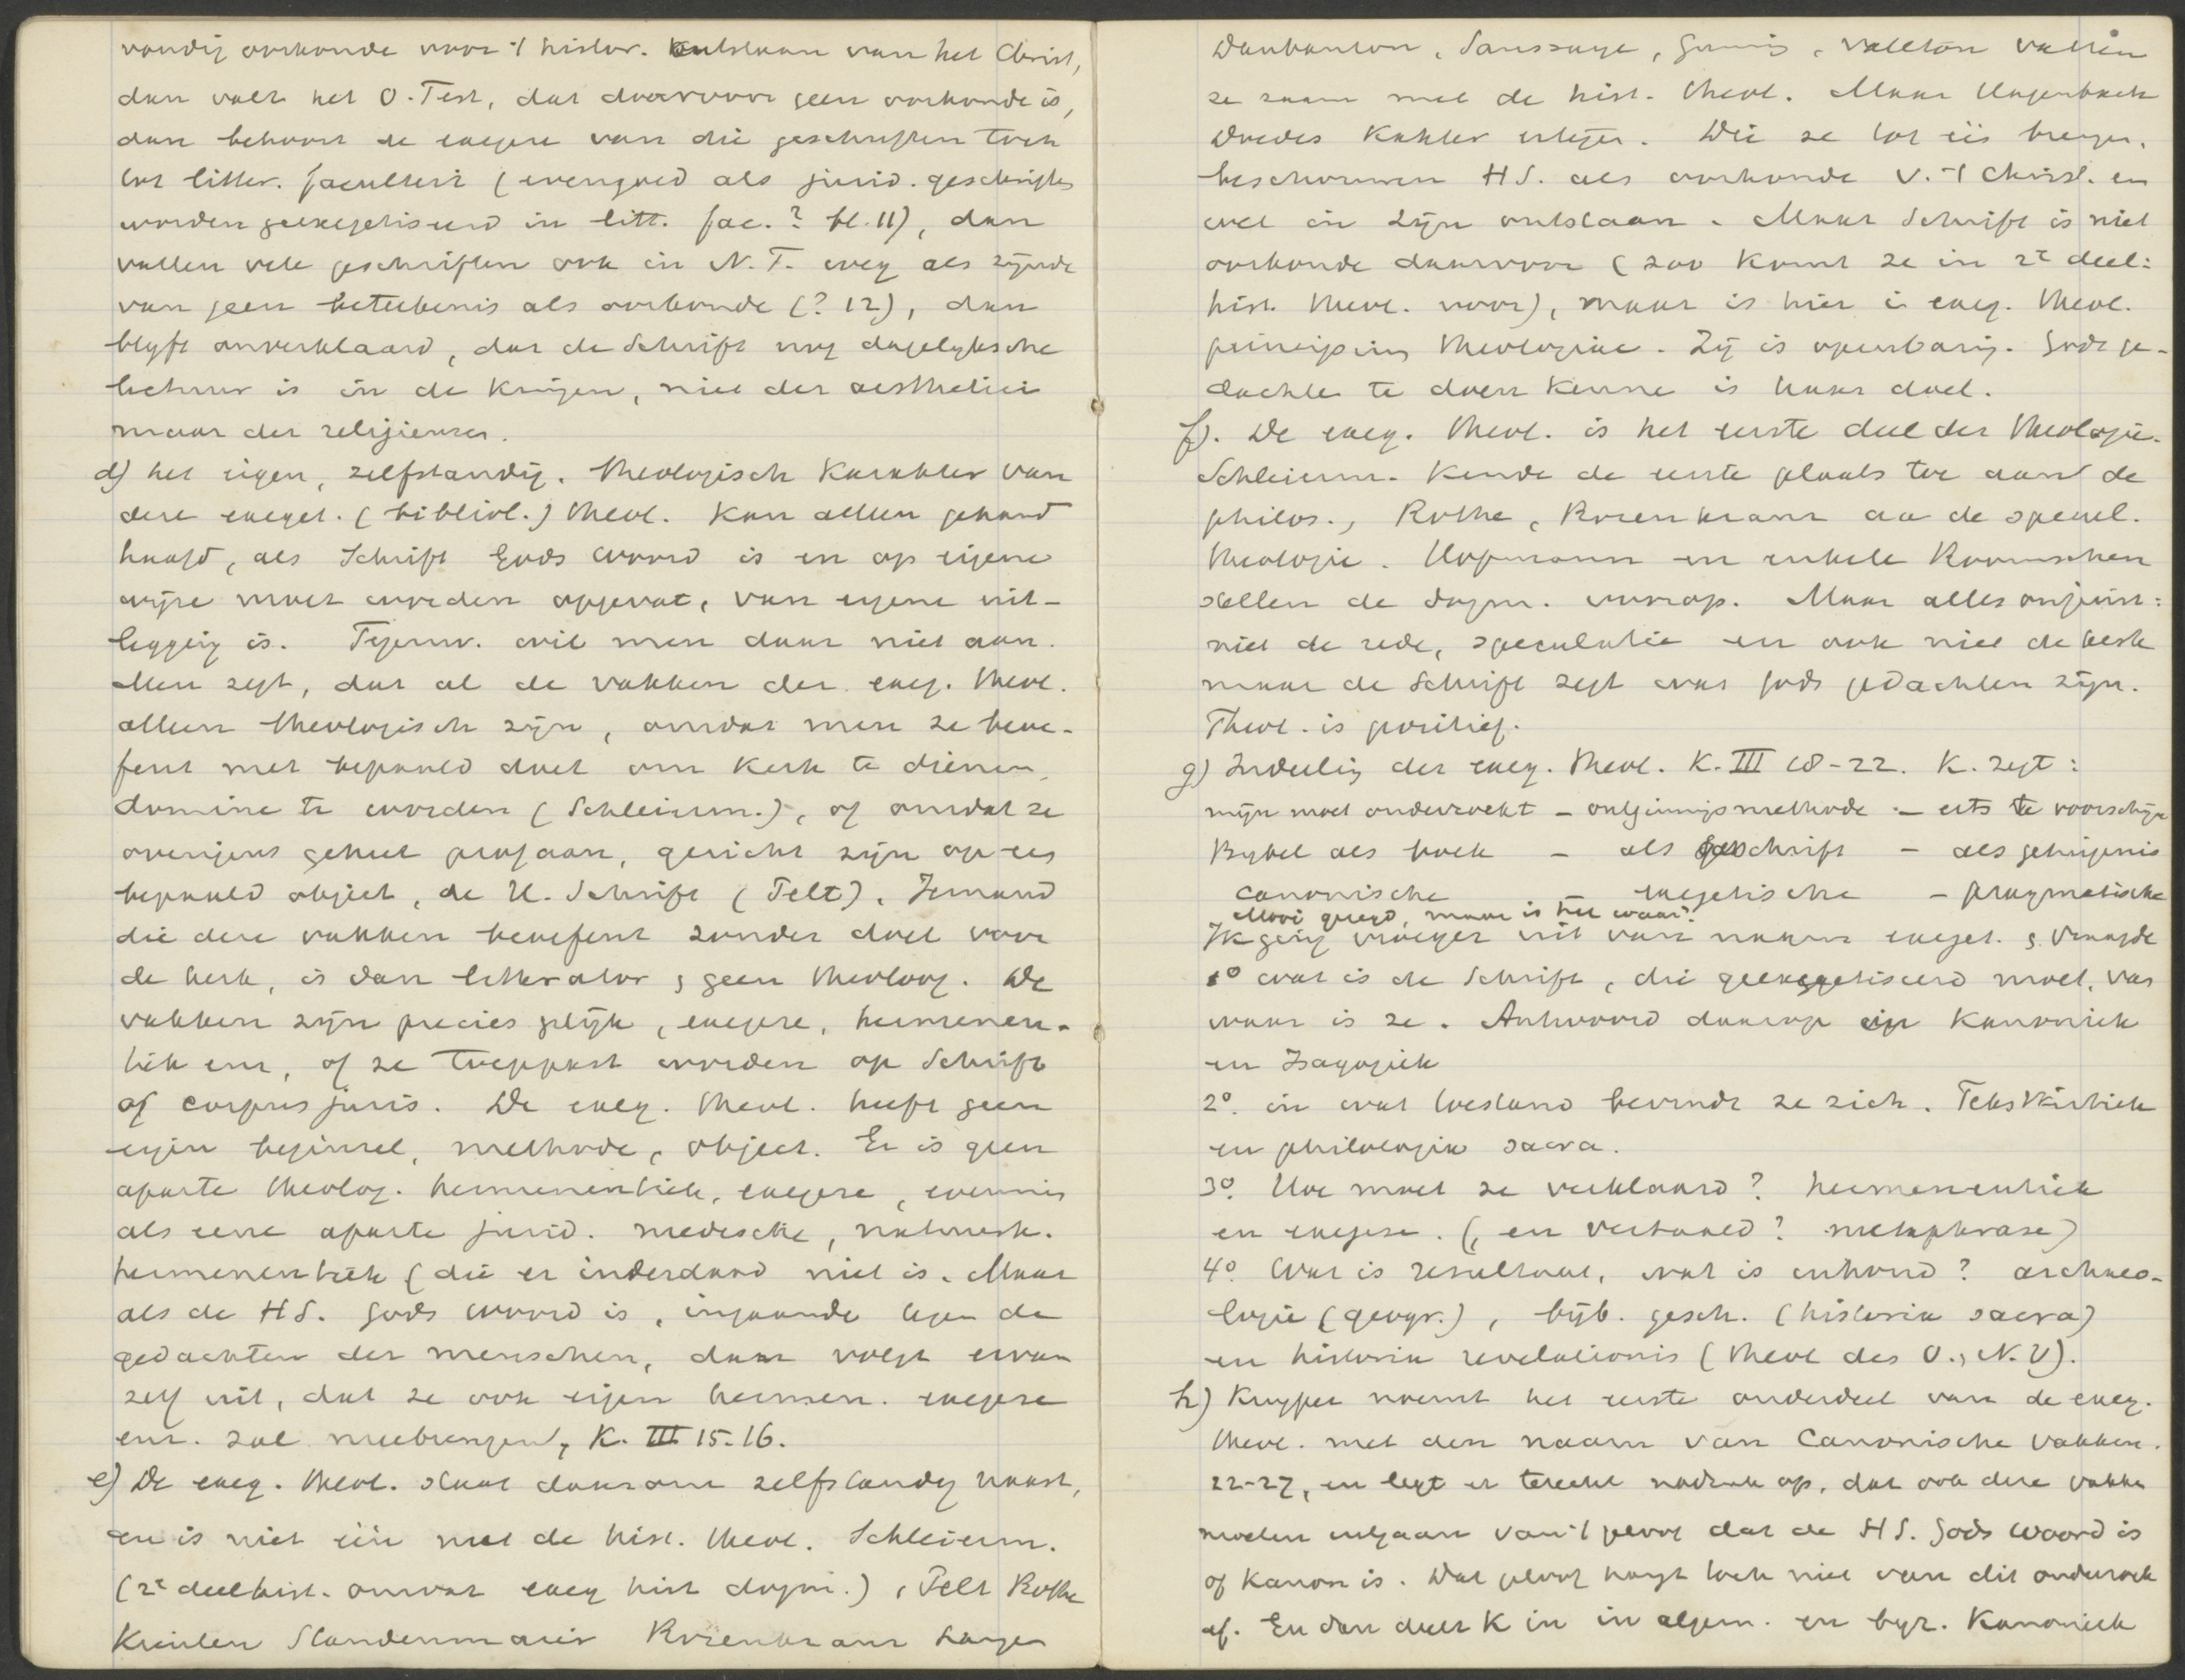 vondig oorkonde voor 't histor. ontstaan van het Christ,
dan valt het O. Test, dat daarvoor geen oorkonde is,
dan behoort de exegese van die geschriften toch
tot litter. faculteit (evengoed als jurid. geschriften
worden geexegetiseerd in litt. fac.? bl. 11), dan
vallen vele geschriften ook in N. T. weg als zijnde
van geen beteekenis als oorkonde (? 12), dan
blyft onverklaard, dat de Schrift nog dagelyksche
lectuur is in de kringen, niet der aesthetici
maar der religieuzen.
d) het eigen, zelfstandig. theologisch karakter van
deze exeget. (bibliol.) theol. kan alleen gehand
haafd, als Schrift Gods woord is en op eigene
wijze moet worden opgevat, van eigene uit-
legging is. Tegenw. wil men daar niet aan.
Men zegt, dat al de vakken der exeg. theol.
alleen theologisch zijn, omdat men ze beoe-
fent met bepaald doel om kerk te dienen,
domine te worden (Schleierm.), of omdat ze
overigens geheel profaan, gericht zijn op een
bepaald object, de H. Schrift (Pelt). Iemand
die deze vakken beoefent zonder doel voor
de kerk, is dan litterator & geen theoloog. De
vakken zijn precies gelijk, exegese, hermeneu-
tiek enz, of ze toegepast worden op Schrift
of corpus juris. De exeg. theol. heeft geen
eigen beginsel, methode, object. Er is geen
aparte theolog. hermeneutiek, exegese, evenmin
als eene aparte jurid. medische, natuurk.
hermeneutiek (die er inderdaad niet is. Maar
als de H S. Gods woord is, ingaande tegen de
gedachten der menschen, dan volgt ervan
zelf uit, dat ze ook eigen hermen. exegese
enz. zal meebrengen, K. III 15-16.
e) De exeg. theol. staat daarom zelfstandig naast,
en is niet één met de hist. theol. Schleierm.
(2e deel hist. omvat exeg hist dogm.), Pelt Rothe
Kienlen Staudenmaier Rosenkranz Lange
Daubanton, Saussaye, Gunning, Valeton vatten
ze saam met de hist. theol. Maar Hagenbach
Doedes Kähler ertegen. Die ze tot één brengen,
beschouwen H S. als oorkonde v. 't Christ. en
wel in zijn ontstaan. Maar Schrift is niet
oorkonde daarvoor (zoo komt ze in 2e deel:
hist. theol. voor), maar is hier in exeg. theol.
principium theologiae. Zij is openbaring. Gods ge-
dachte te doen kenne is haar doel.
f). De exeg. theol. is het eerste deel der theologie.
Schleierm. kende de eerste plaats toe aan de
philos., Rothe, Rosenkranz aa de specul.
theologie. Hofmann en enkele Roomschen
stellen de dogm. voorop. Maar alles onjuist:
niet de rede, speculatie en ook niet de kerk
maar de Schrift zegt wat Gods gedachten zijn.
Theol. is positief.
g) Indeeling der exeg. theol. K. III 18-22. K. zegt:
mijn moet onderzocht – ontginningsmethode – erts te voorschijn
Bybel als boek – als geschrift – als getuigenis
canonische – exegetische – pragmatische
Mooi gezegd, maar is het waar?
Ik ging vroeger uit van naam exeget. & vraagde
1o wat is de Schrift, die geexegetiseerd moet, van
waar is ze. Antwoord daarop in Kanoniek
en Isagogiek
2o. in wat toestand bevindt ze zich. Tekstkritiek
en philologia sacra.
3o. Hoe moet ze verklaard? hermeneutiek
en exegese. (, en vertaald? metaphrase)
4o. Wat is resultaat, wat is inhoud? archaeo-
logie (geogr.), bijb. gesch. (historia sacra)
en historia revelationis (theol des O., N. V).
h) Kuyper noemt het eerste onderdeel van de exeg.
theol. met den naam van Canonische vakken.
22-27, en legt er terecht nadruk op, dat ook deze vakke
moeten uitgaan van 't geloof dat de H S. Gods woord is
of kanon is. Dat geloof hangt toch niet van dit onderzoek
af. En dan deelt K in in algem. en byz. Kanoniek